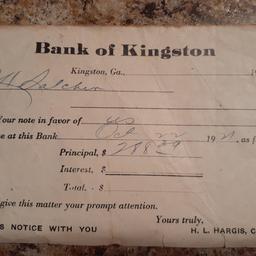 Bank of Kingston
Kingston, Ga., 19
Your note in favor of us
e at this Bank Oct 22 192 , as f
Principal, $ 288 39
Interest, $
Total, - $
give this matter your prompt attention.
Yours truly,
S NOTICE WITH YOU H. L. HARGIS, C